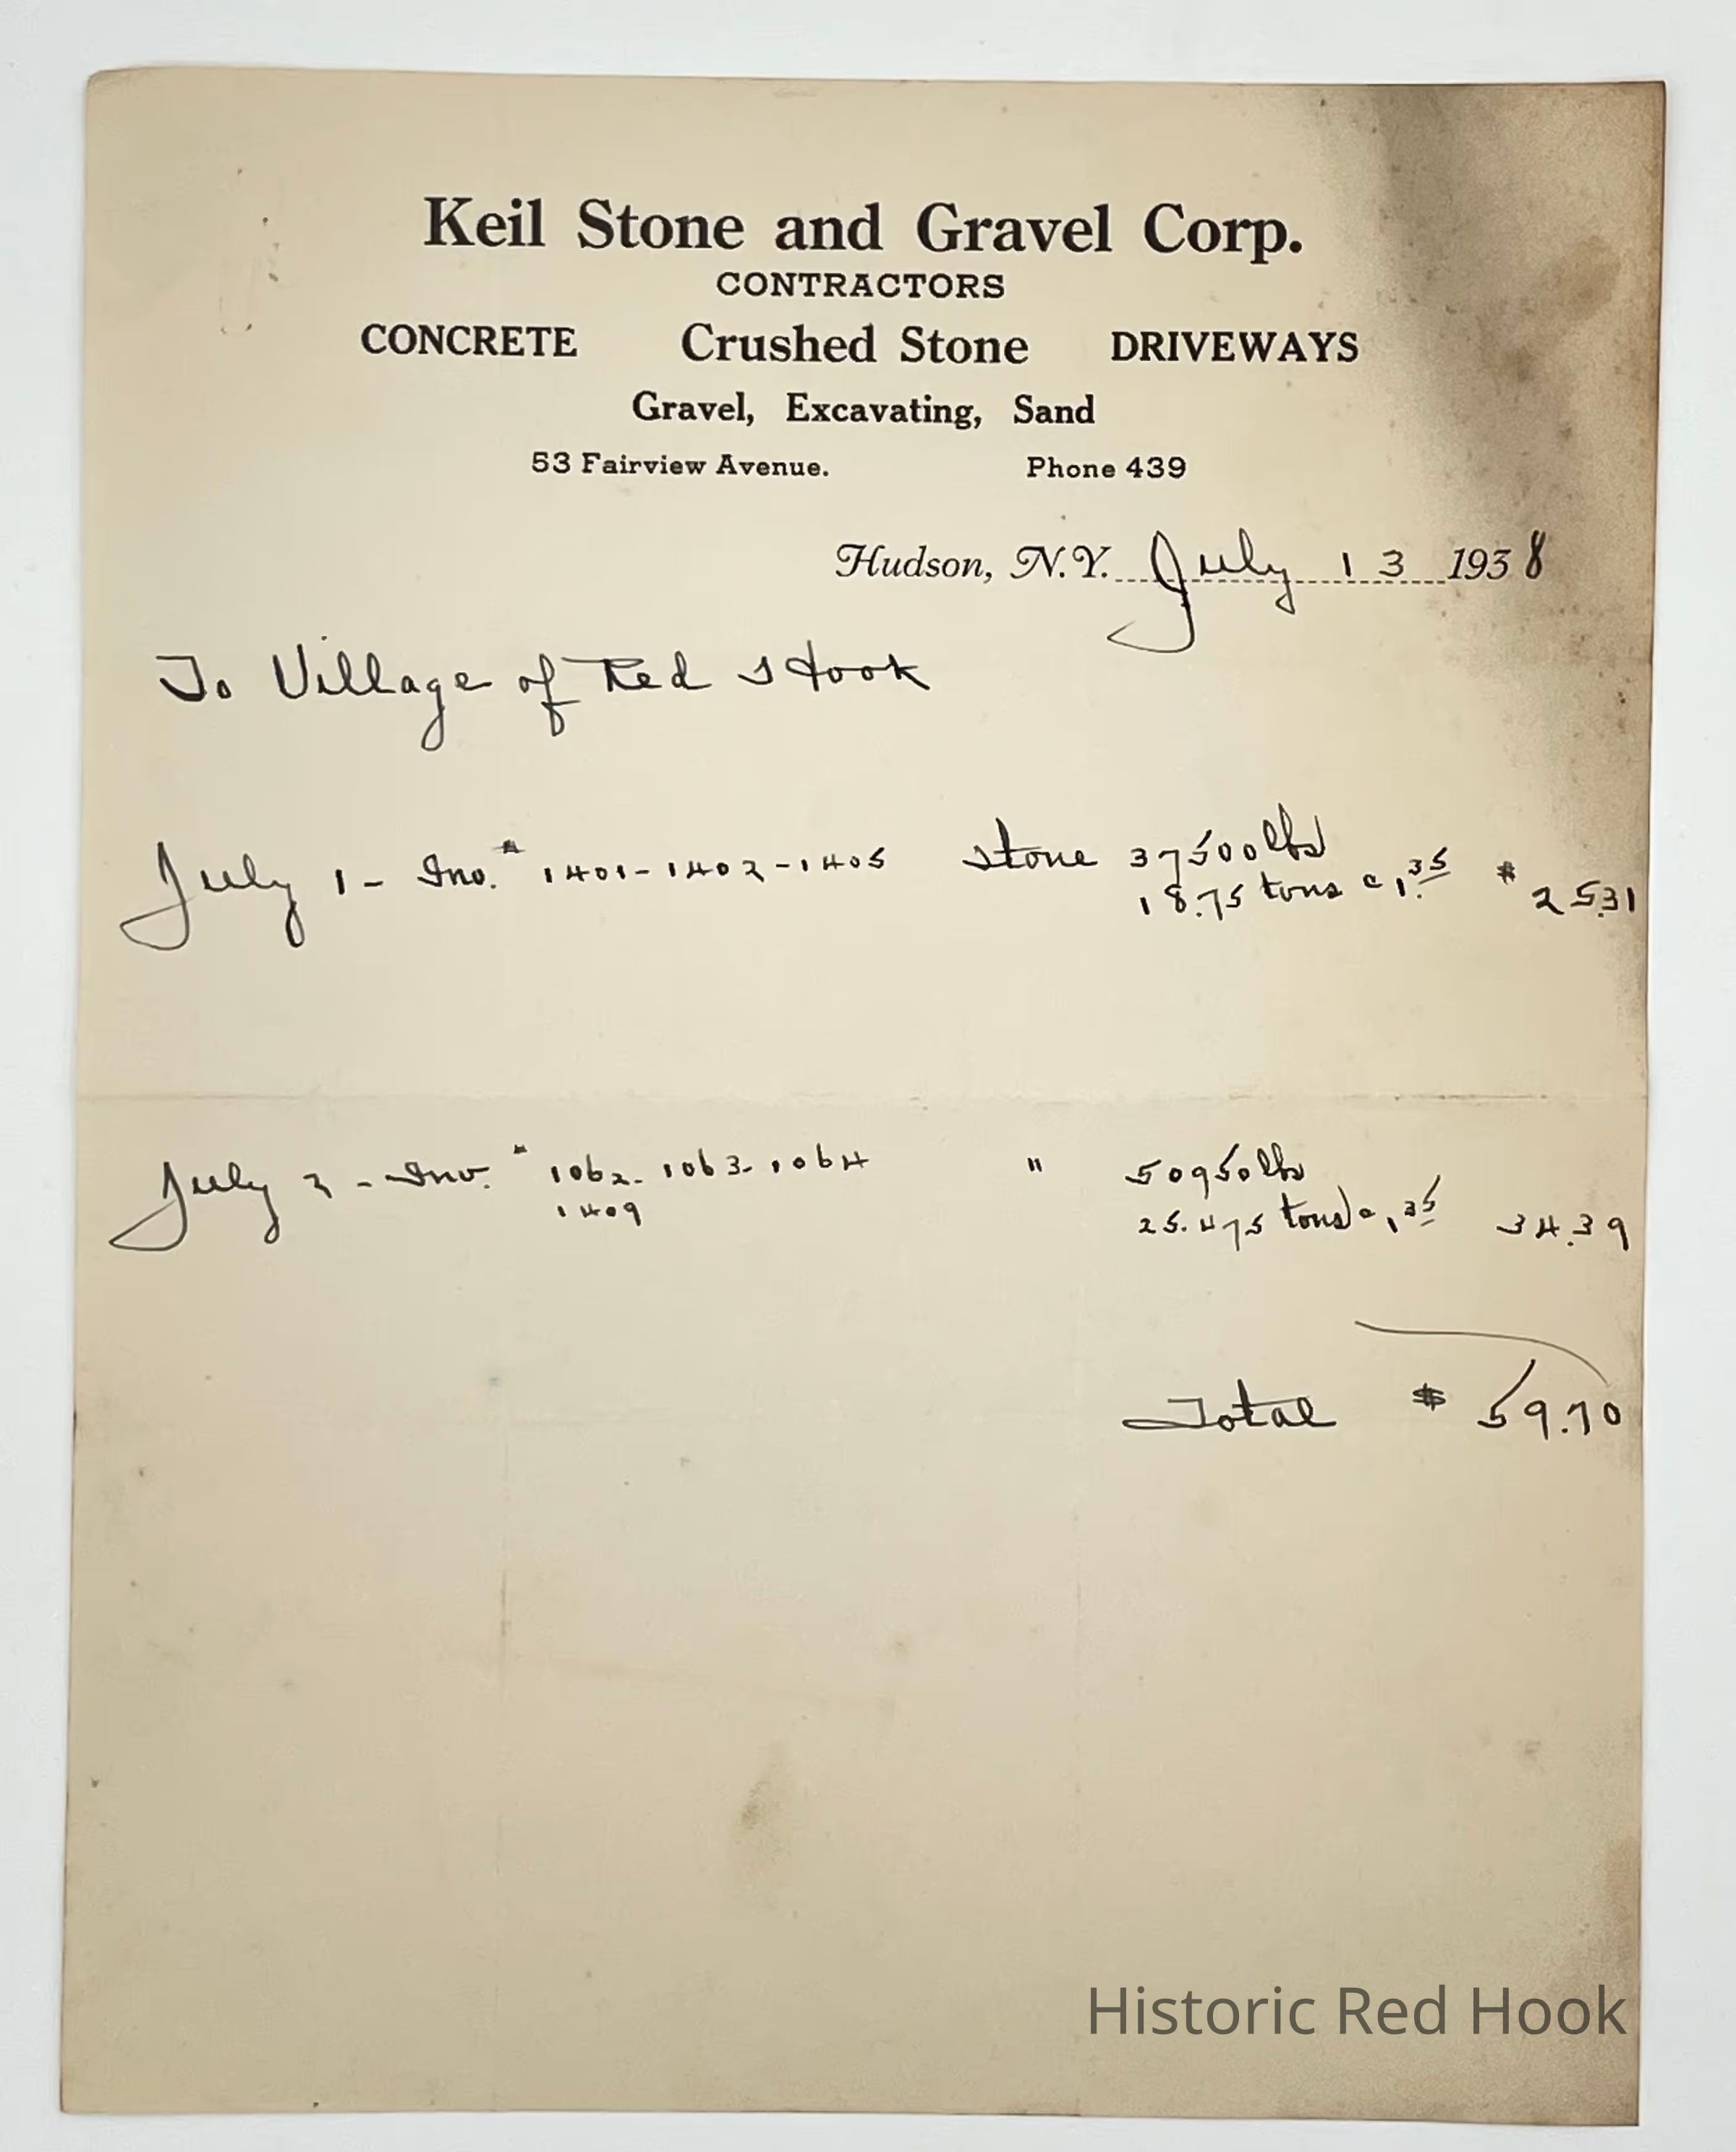 Keil Stone and Gravel Corp.
CONTRACTORS
CONCRETE Crushed Stone DRIVEWAYS
Gravel, Excavating, Sand
53 Fairview Avenue. Phone 439
Hudson, N.Y. July 13 1938
To Village of Red Hook
July 1 - Inv. # 1401-1402-1405 Stone 37500 lbs
18.75 tons @ 1.35 $ 25.31
July 2 - Inv. # 1062-1063-1064 " 50950 lbs
1409 25.475 tons @ 1.35 34.39
Total $ 59.70
Historic Red Hook